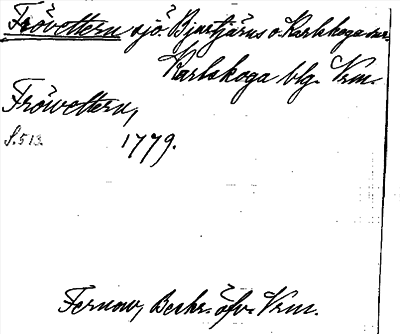 Frövettern sjö Bjurtjärns o. Karlskoga snr.
Karlskoga blg. Vrm.
Fröwettern,
S. 513. 1779.
Fernow, Beskr. öfv. Vrm.